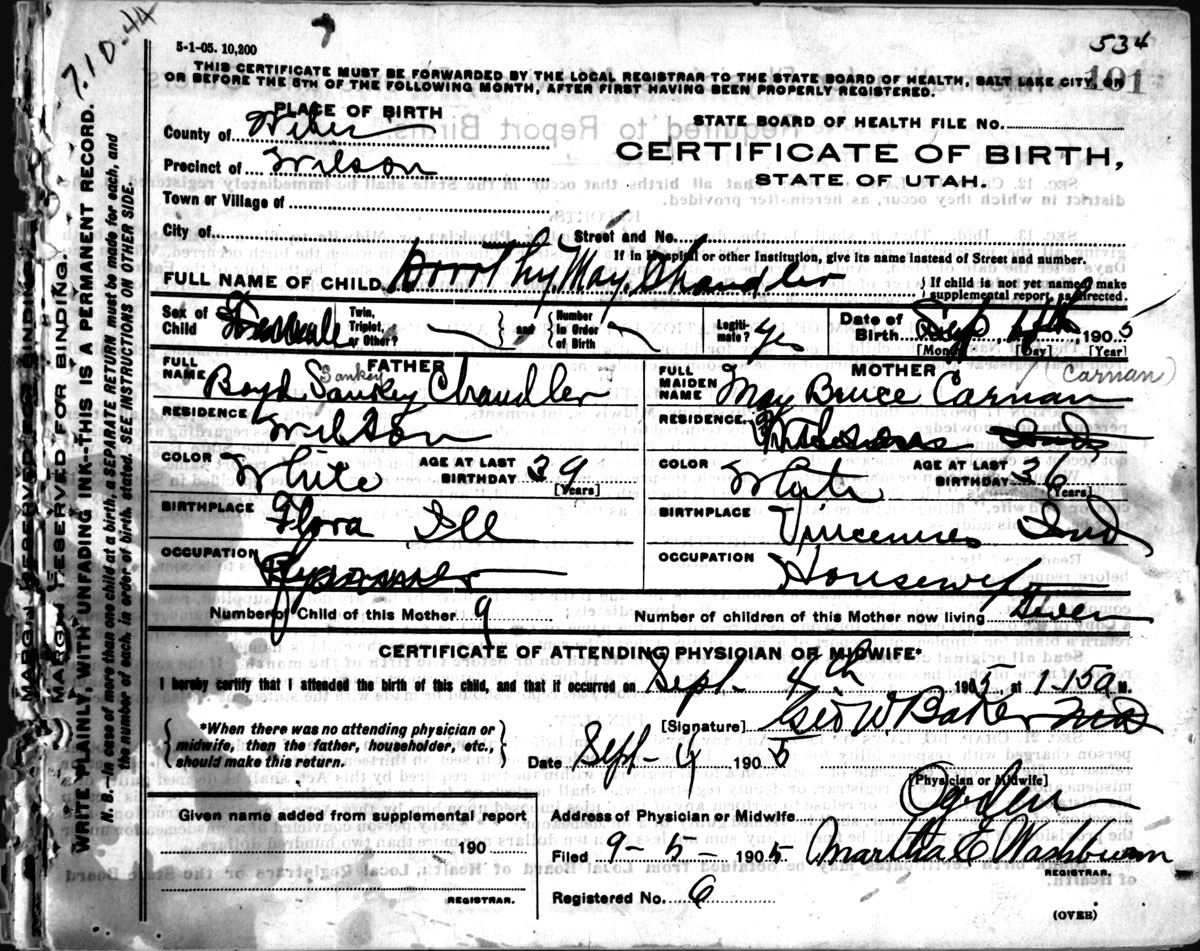 7.10.44
5-1-05. 10,200
534
101
THIS CERTIFICATE MUST BE FORWARDED BY THE LOCAL REGISTRAR TO THE STATE BOARD OF HEALTH, SALT LAKE CITY, ON
OR BEFORE THE 5TH OF THE FOLLOWING MONTH, AFTER FIRST HAVING BEEN PROPERLY REGISTERED.
PLACE OF BIRTH
County of Weber
Precinct of Wilson
Town or Village of
City of
Street and No.
STATE BOARD OF HEALTH FILE NO.
CERTIFICATE OF BIRTH,
STATE OF UTAH.
If in Hospital or other Institution, give its name instead of Street and number.
FULL NAME OF CHILD Dorothy May Chandler
If child is not yet named make
supplemental report, as directed.
Sex of Child Female
Twin, Triplet, or Other?
and
Number in Order of Birth
Legitimate? yes
Date of Birth Sept 4th 1905
[Month] [Day] [Year]
FATHER
FULL NAME Boyd Sankey Chandler
Sankey
RESIDENCE Wilson
COLOR White AGE AT LAST BIRTHDAY 39
[Years]
BIRTHPLACE Flora Ill
OCCUPATION
MOTHER
FULL MAIDEN NAME May Bruce Carnan
(Carnan)
RESIDENCE
COLOR White AGE AT LAST BIRTHDAY 36
[Years]
BIRTHPLACE Vincennes Ind
OCCUPATION Housewife
Number of Child of this Mother 9
Number of children of this Mother now living
CERTIFICATE OF ATTENDING PHYSICIAN OR MIDWIFE*
I hereby certify that I attended the birth of this child, and that it occurred on Sept- 4th 1905, at 1-15a M.
*When there was no attending physician or
midwife, then the father, householder, etc.,
should make this return.
[Signature] Geo W. Baker MD
Date Sept- 4 1905
[Physician or Midwife]
Address of Physician or Midwife Ogden
Given name added from supplemental report
190
REGISTRAR.
Filed 9-5- 1905 Martha E Washburn
REGISTRAR.
Registered No. 6
(OVER)
MARGIN RESERVED FOR BINDING.
MARGIN RESERVED FOR BINDING.
WRITE PLAINLY, WITH UNFADING INK--THIS IS A PERMANENT RECORD.
N. B.--In case of more than one child at a birth, a SEPARATE RETURN must be made for each, and
the number of each, in order of birth, stated. SEE INSTRUCTIONS ON OTHER SIDE.